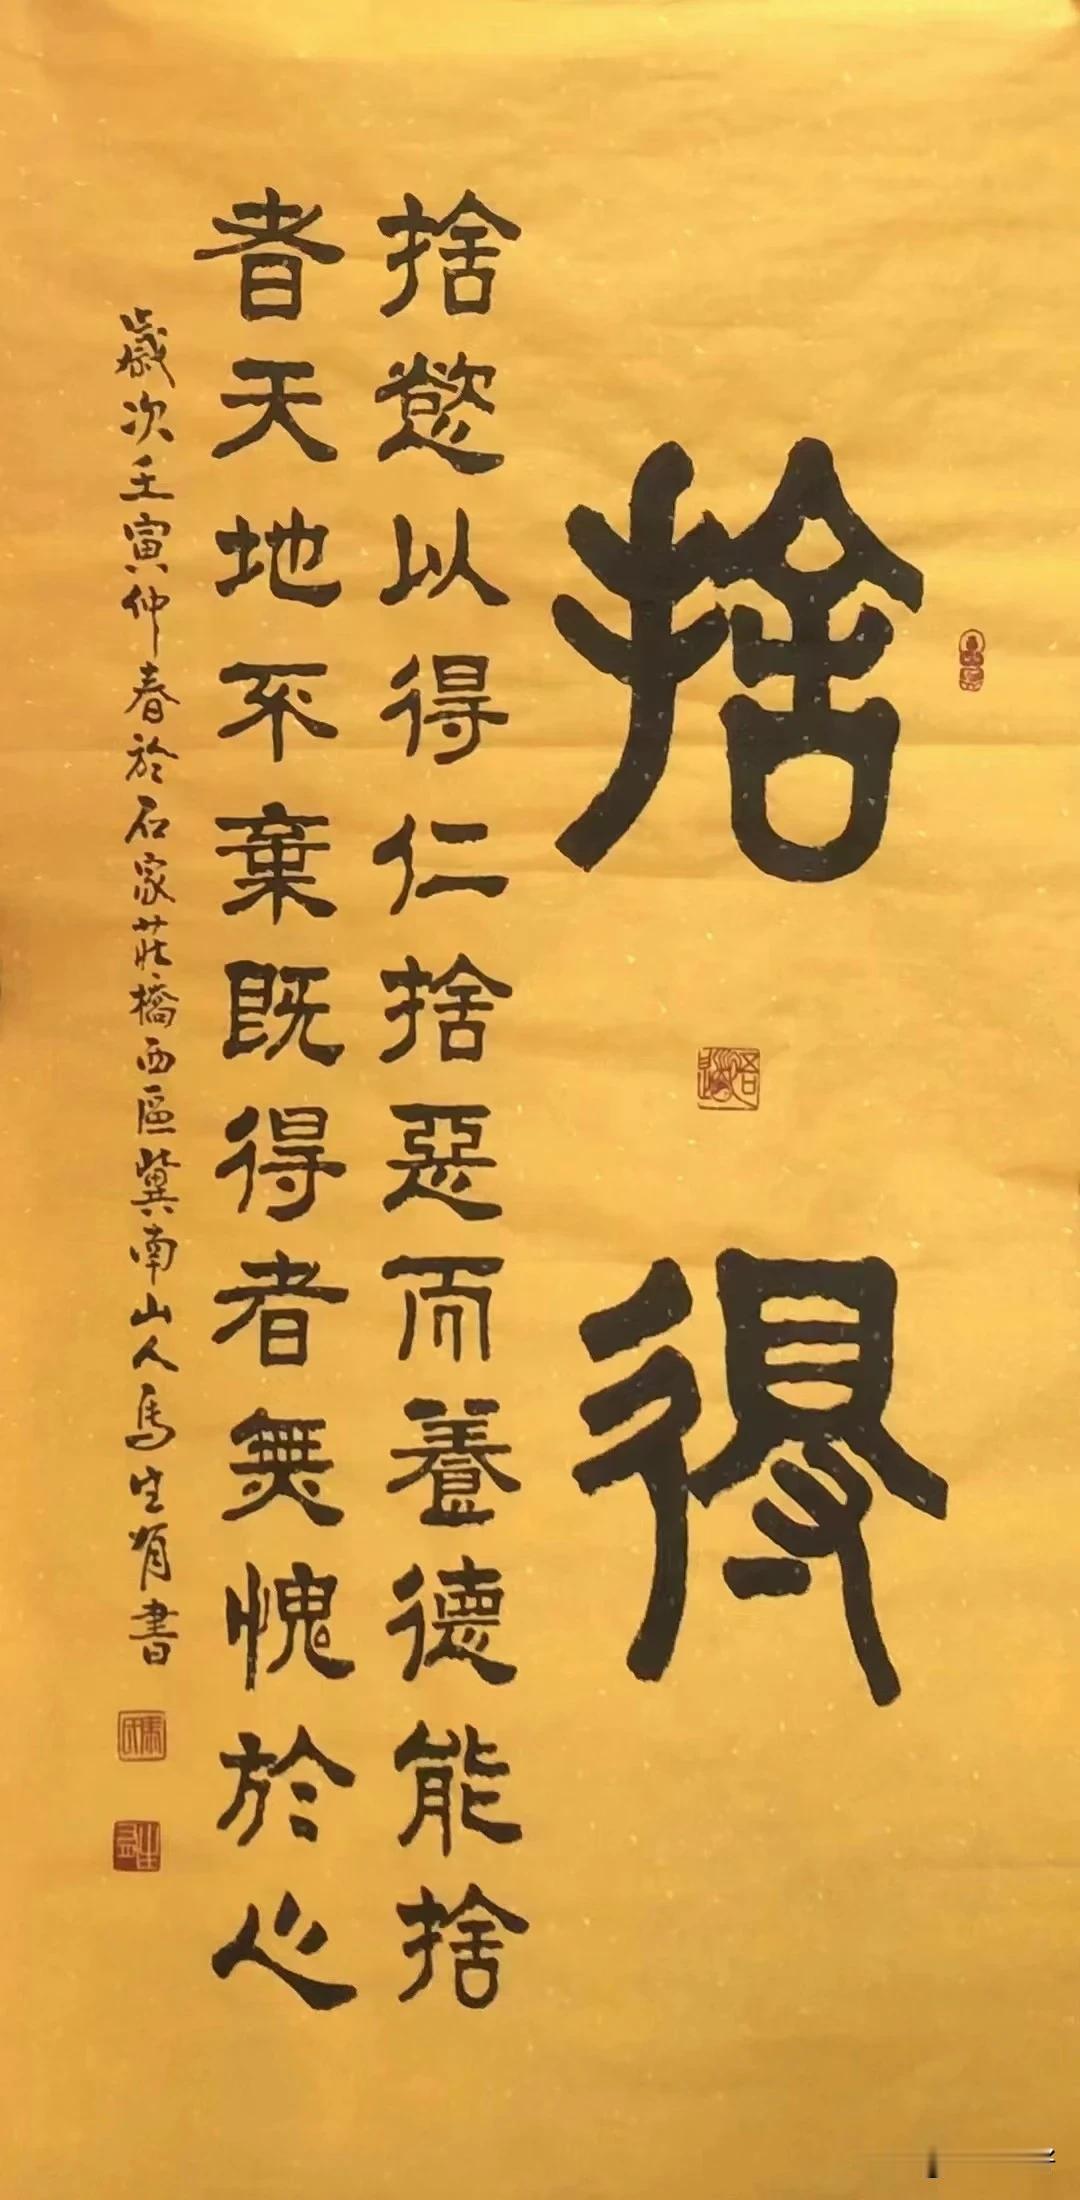 捨得
捨慾以得仁捨惡而養德能捨
者天地不棄既得者無愧於心
歲次壬寅仲春於石家莊橋西區冀南山人馬生有書